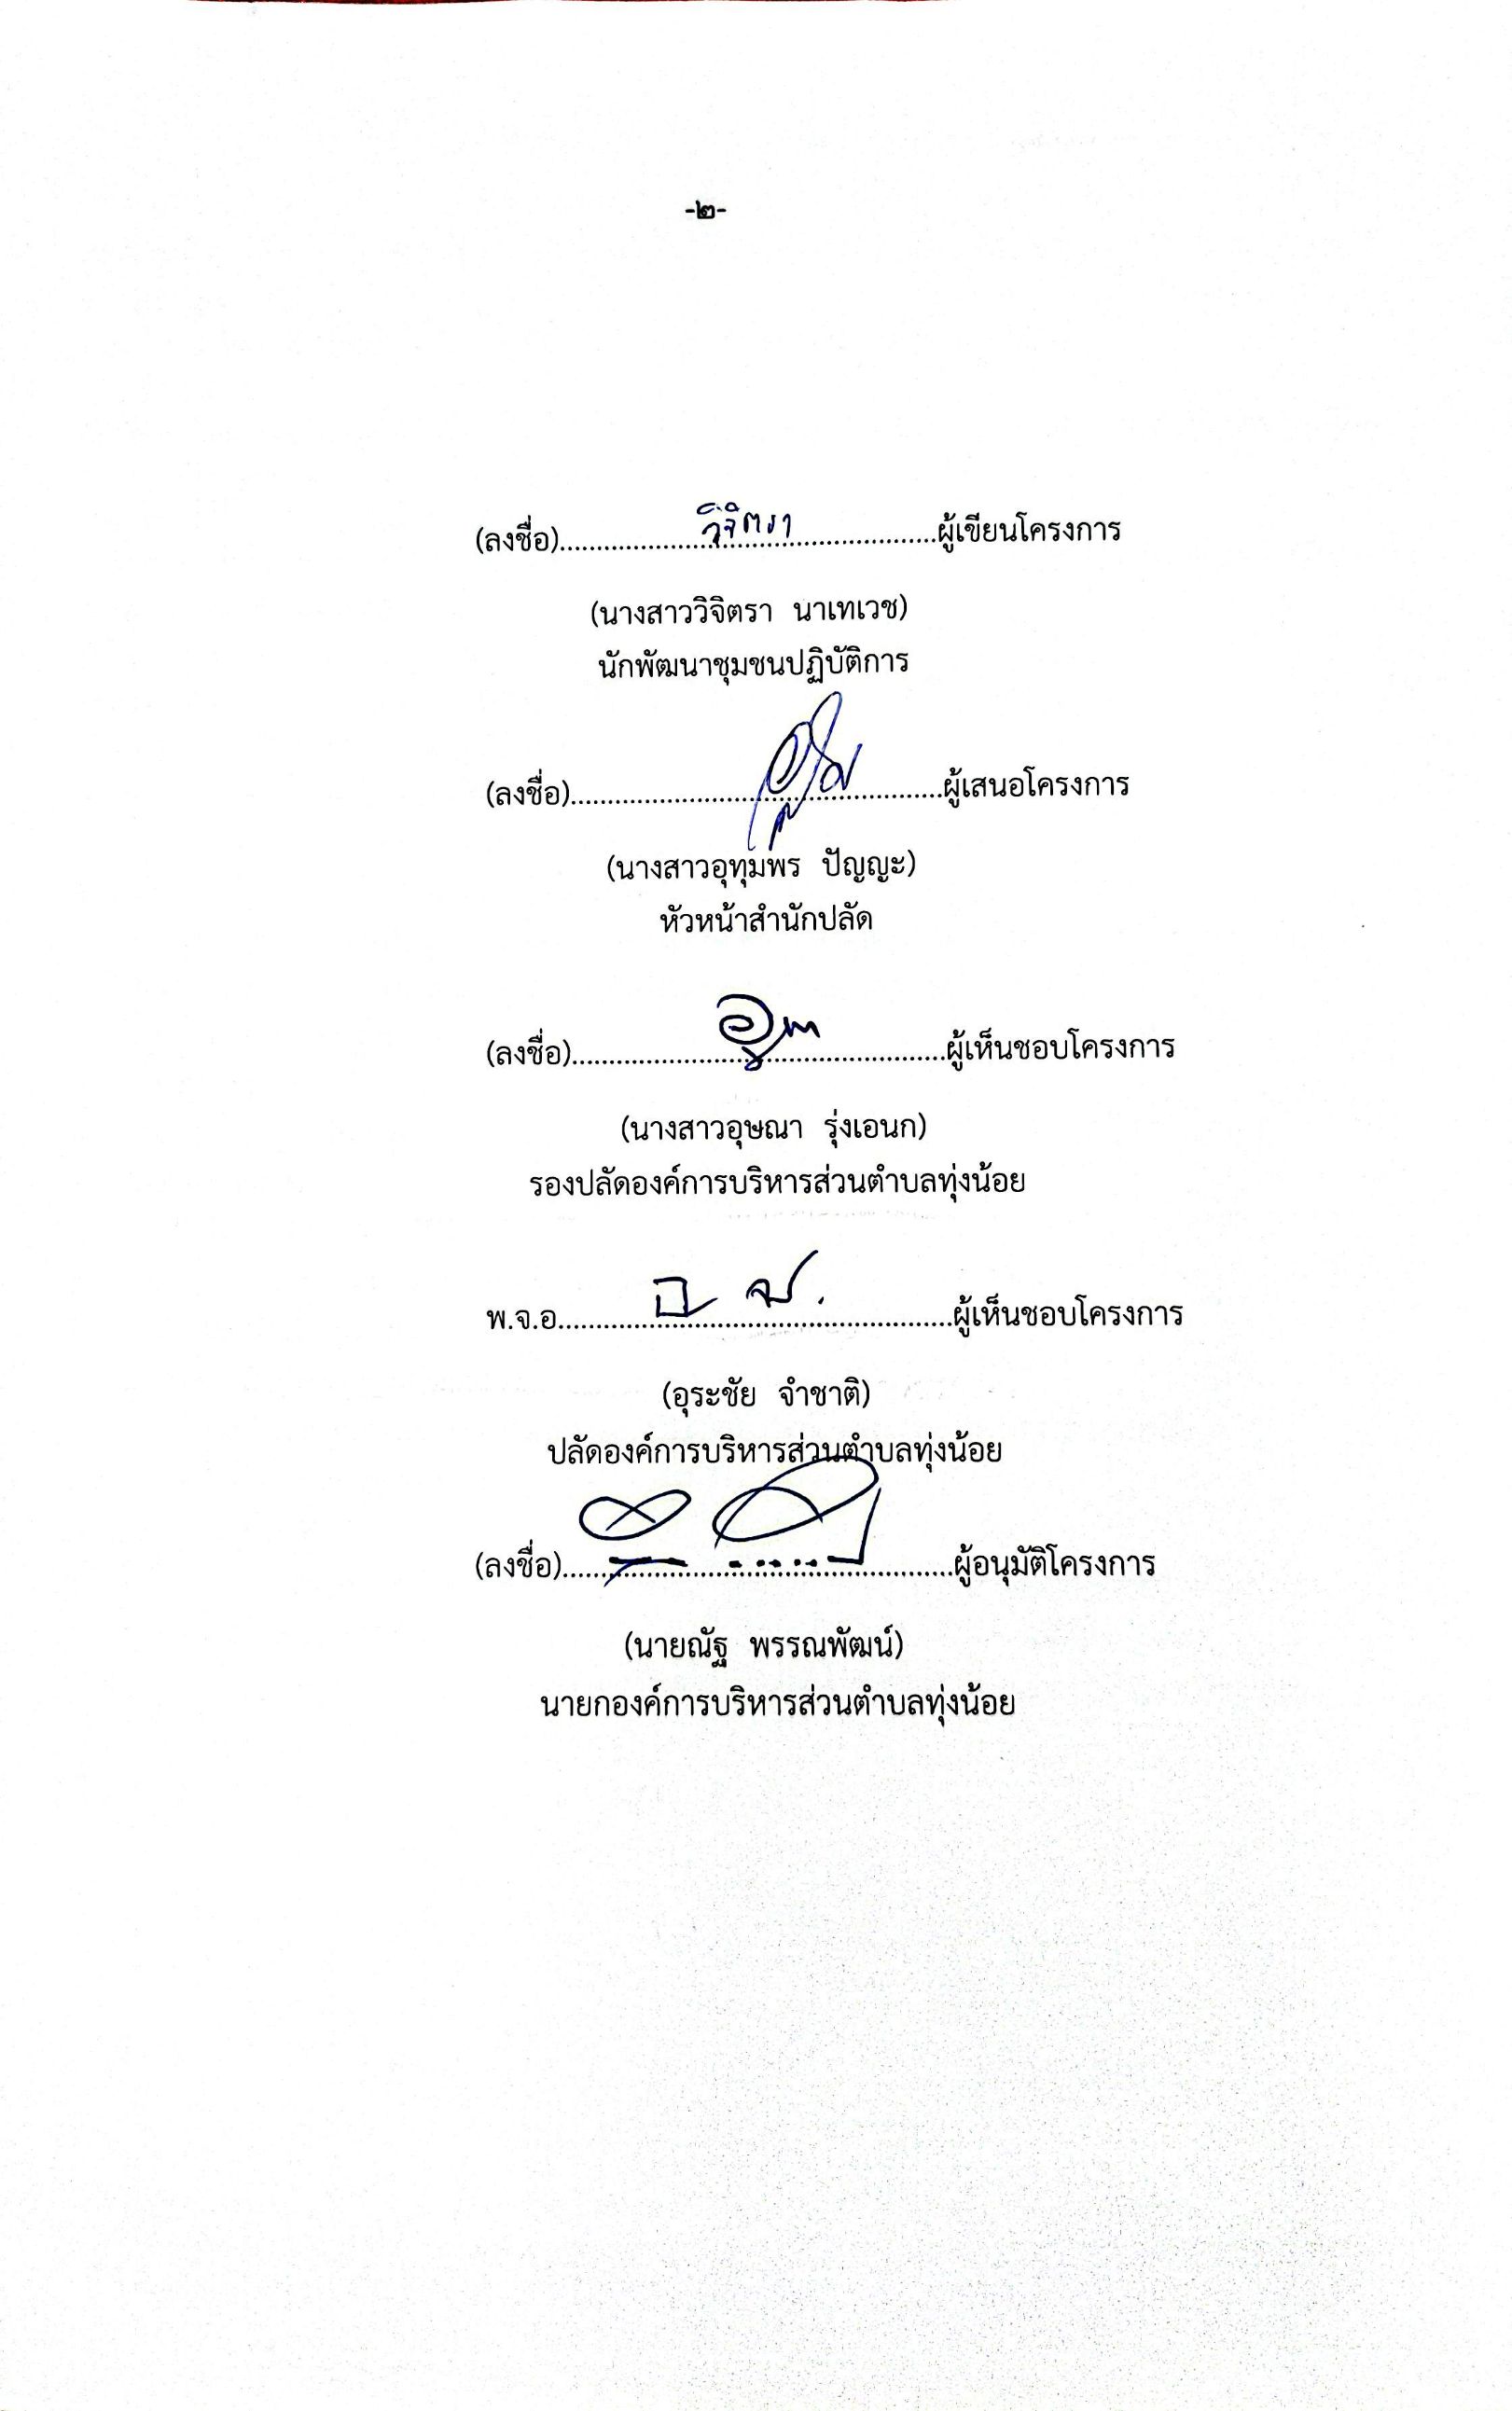 -๒-
(ลงชื่อ)..........วิจิตรา..........ผู้เขียนโครงการ
(นางสาววิจิตรา นาเทเวช)
นักพัฒนาชุมชนปฏิบัติการ
(ลงชื่อ)....................ผู้เสนอโครงการ
(นางสาวอุทุมพร ปัญญะ)
หัวหน้าสำนักปลัด
(ลงชื่อ)....................ผู้เห็นชอบโครงการ
(นางสาวอุษณา รุ่งเอนก)
รองปลัดองค์การบริหารส่วนตำบลทุ่งน้อย
พ.จ.อ....................ผู้เห็นชอบโครงการ
(อุระชัย จำชาติ)
ปลัดองค์การบริหารส่วนตำบลทุ่งน้อย
(ลงชื่อ)....................ผู้อนุมัติโครงการ
(นายณัฐ พรรณพัฒน์)
นายกองค์การบริหารส่วนตำบลทุ่งน้อย